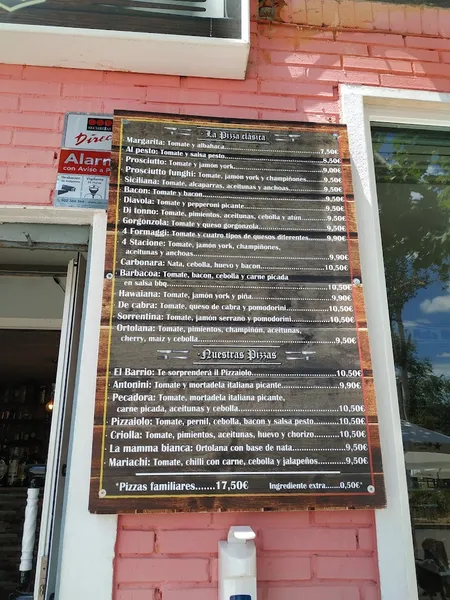 Direc
Alarm
con Aviso a P
La Pizza clásica
Margarita: Tomate y albahaca.....7,50€
Al pesto: Tomate y salsa pesto.....8,50€
Prosciutto: Tomate y jamón york.....9,00€
Prosciutto funghi: Tomate, jamón york y champiñones.....9,50€
Siciliana: Tomate, alcaparras, aceitunas y anchoas.....9,50€
Bacon: Tomate y bacon.....9,50€
Diavola: Tomate y pepperoni picante.....9,50€
Di tonno: Tomate, pimientos, aceitunas, cebolla y atún.....9,50€
Gorgonzola: Tomate y queso gorgonzola.....9,50€
4 Formaggi: Tomate y cuatro tipos de quesos diferentes.....9,90€
4 Stacione: Tomate, jamón york, champiñones,
aceitunas y anchoas.....9,90€
Carbonara: Nata, cebolla, huevo y bacon.....10,50€
Barbacoa: Tomate, bacon, cebolla y carne picada
en salsa bbq.....10,50€
Hawaiana: Tomate, jamón york y piña.....9,90€
De cabra: Tomate, queso de cabra y pomodorini.....10,50€
Sorrentina: Tomate, jamón serrano y pomodorini.....10,50€
Ortolana: Tomate, pimientos, champiñón, aceitunas,
cherry, maíz y cebolla.....9,50€
Nuestras Pizzas
El Barrio: Te sorprenderá il Pizzaiolo.....10,50€
Antonini: Tomate y mortadela italiana picante.....9,90€
Pecadora: Tomate, mortadela italiana picante,
carne picada, aceitunas y cebolla.....10,50€
Pizzaiolo: Tomate, pernil, cebolla, bacon y salsa pesto.....10,50€
Criolla: Tomate, pimientos, aceitunas, huevo y chorizo.....10,50€
La mamma bianca: Ortolana con base de nata.....9,50€
Mariachi: Tomate, chilli con carne, cebolla y jalapeños.....9,50€
*Pizzas familiares.......17,50€ Ingrediente extra......0,50€*